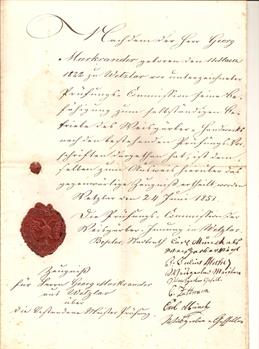 Nachdem der Herr Georg
Markrander geboren den
1822 zu Wetzlar vor unterzeichneter
Prüfungs Commission seine Be-
fähigung zum selbständigen Be-
triebe des Weisgärber-Handwerks
nach den bestehenden Prüfungs Vor-
schriften dargethan hat, ist dem-
selben zum Ausweis hierüber das
gegenwärtige Zeugniß ertheilt worden
Wetzlar den 24 Juni 1851.
Die Prüfungs Commission der
Weisgärber-Innung in Wetzlar.
Zeugniß
für Herrn Georg Markrander
aus Wetzlar
über
die bestandene Meister Prüfung.